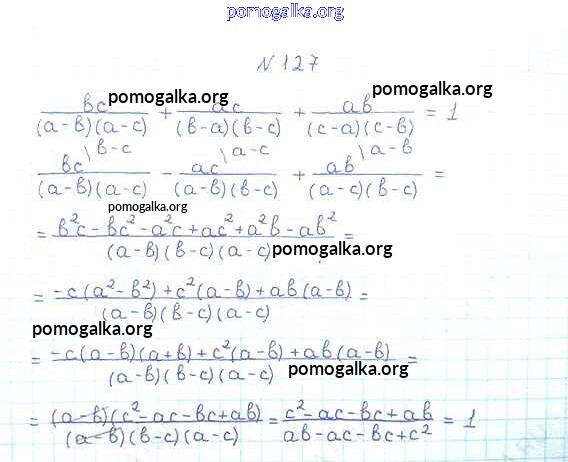 pomogalka.org
N 127
bc/((a-b)(a-c)) + ac/((b-a)(b-c)) + ab/((c-a)(c-b)) = 1
pomogalka.org pomogalka.org pomogalka.org
bc\b-c/((a-b)(a-c)) - ac\a-c/((a-b)(b-c)) + ab\a-b/((a-c)(b-c)) =
pomogalka.org
= (b²c-bc²-a²c+ac²+a²b-ab²)/((a-b)(b-c)(a-c)) =
pomogalka.org
= (-c(a²-b²)+c²(a-b)+ab(a-b))/((a-b)(b-c)(a-c)) =
pomogalka.org
= (-c(a-b)(a+b)+c²(a-b)+ab(a-b))/((a-b)(b-c)(a-c)) =
pomogalka.org
= ((a-b)(c²-ac-bc+ab))/((a-b)(b-c)(a-c)) = (c²-ac-bc+ab)/(ab-ac-bc+c²) = 1